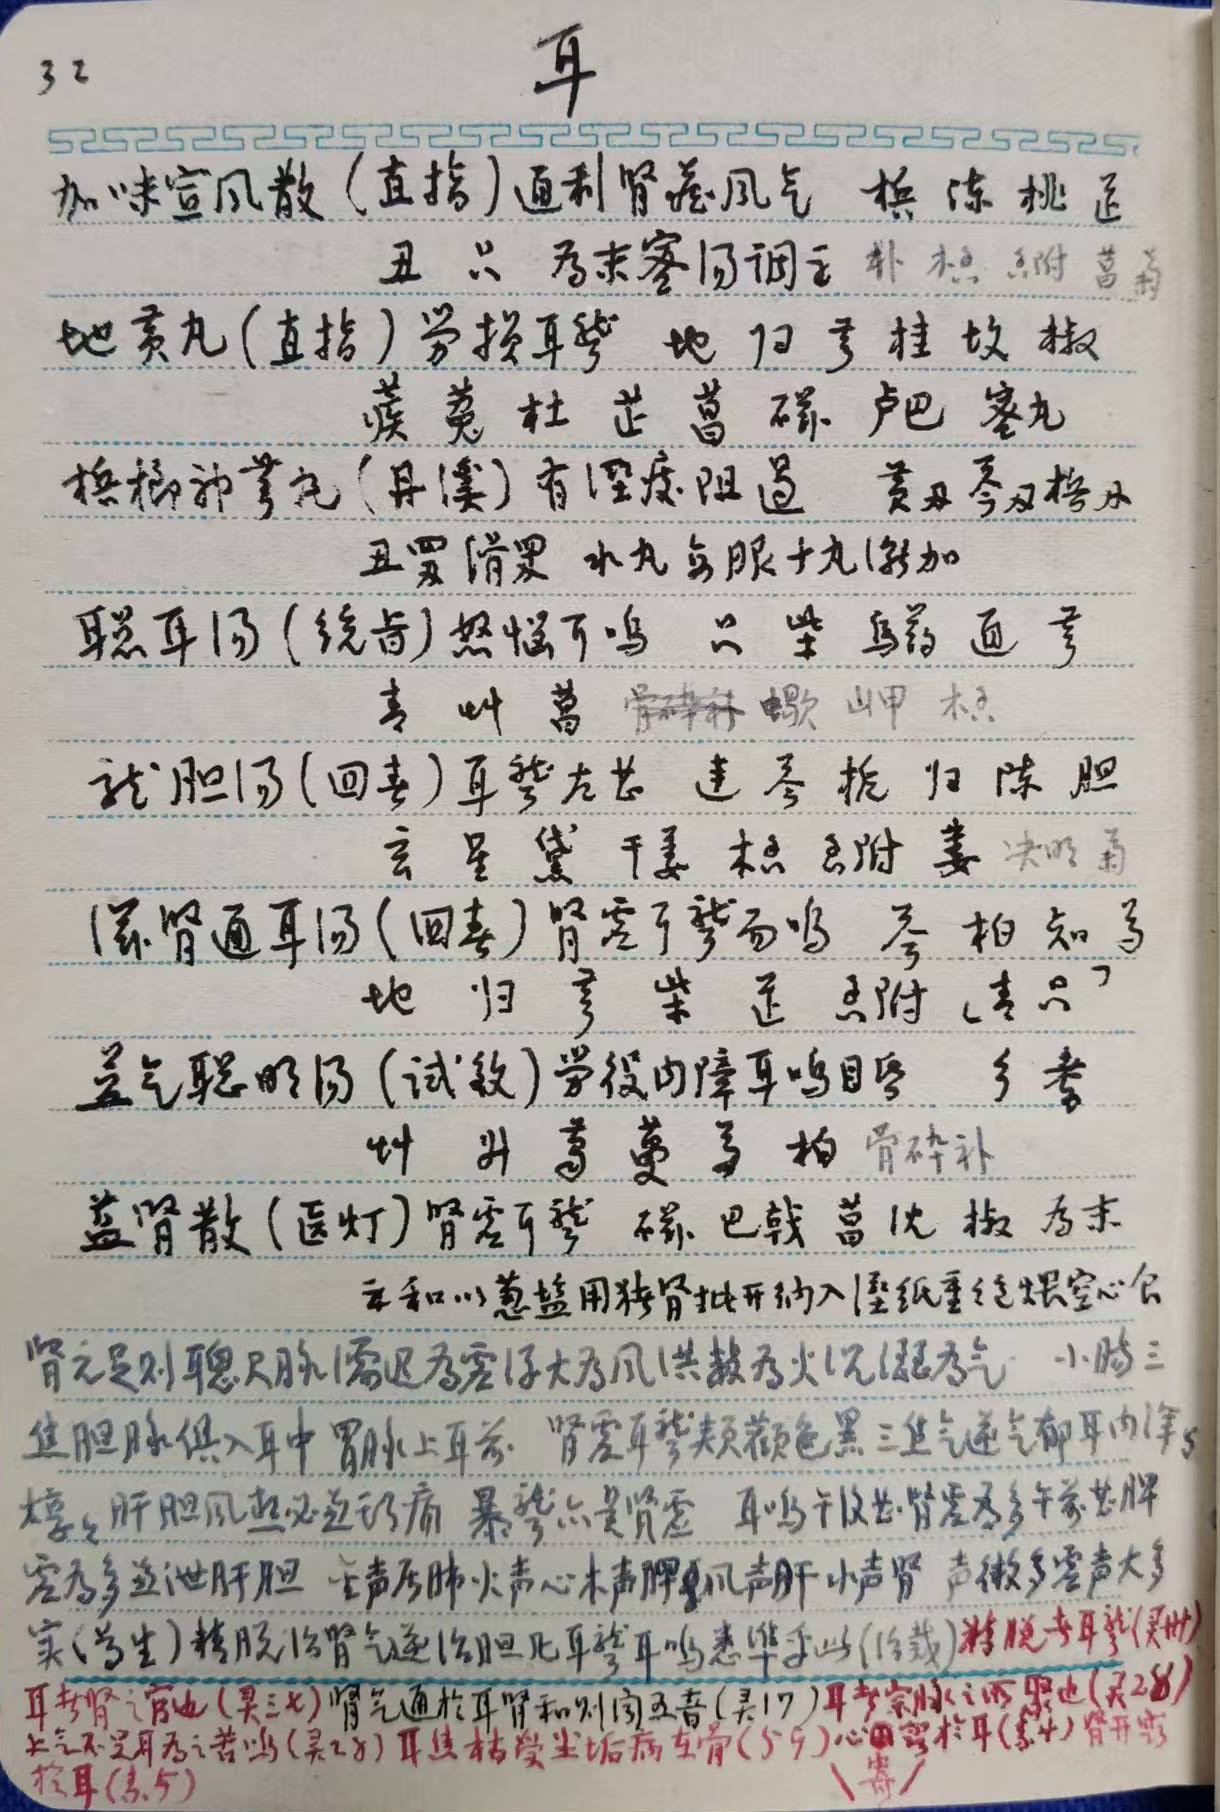 32
耳
加味宣风散(直指)通利肾藏风气 槟 陈 桃 芷
丑 只 为末蜜汤调 朴 香附 菖 菊
地黄丸(直指)劳损耳聋 地 归 芎 桂 椒
蒺 菟 杜 芷 菖 磁 卢巴 蜜丸
槟榔神芎丸(丹溪)有湿痰阻遏 黄 芩 槟
丑 滑 水丸每服十丸渐加
聪耳汤(统旨)怒恼耳鸣 只 柴 乌药 通 芎
青 艸 菖 骨碎补 蝎 山甲
龙胆汤(回春)耳聋左甚 连 芩 栀 归 陈 胆
玄 星 黛 干姜 木香 香附 决明 菊
滋肾通耳汤(回春)肾虚耳聋而鸣 芩 柏 知 芍
地 归 芎 柴 芷 香附 青 只
益气聪明汤(试效)劳役内障耳鸣目昏 参 耆
艸 升 葛 蔓 芍 柏 骨碎补
益肾散(医灯)肾虚耳聋 磁 巴戟 菖 沈 椒 为末
和以葱盐用猪肾批开纳入湿纸重包煨空心食
肾元足则聪尺脉濡迟为虚浮大为风洪数为火沉涩为气 小肠三
焦胆脉俱入耳中 胃脉上耳前 肾虚耳聋颊颜色黑 三焦气逆气郁耳内
肝胆风热必 痛 暴聋亦是肾虚 耳鸣午后甚肾虚为多午前甚脾
虚为多 泄肝胆 金声属肺火声心木声脾风声肝水声肾 声微多虚声大多
实(尊生)精脱治肾气逆治胆凡耳聋耳鸣悉 (治裁)精脱者耳聋(灵卅)
耳者肾之官也(灵三七)肾气通于耳肾和则闻五音(灵17)耳者宗脉之所聚也(灵28)
上气不足耳为之苦鸣(灵28)耳焦枯受尘垢病在骨(灵59)心 窍于耳(素4)肾开窍
寄
于耳(素5)